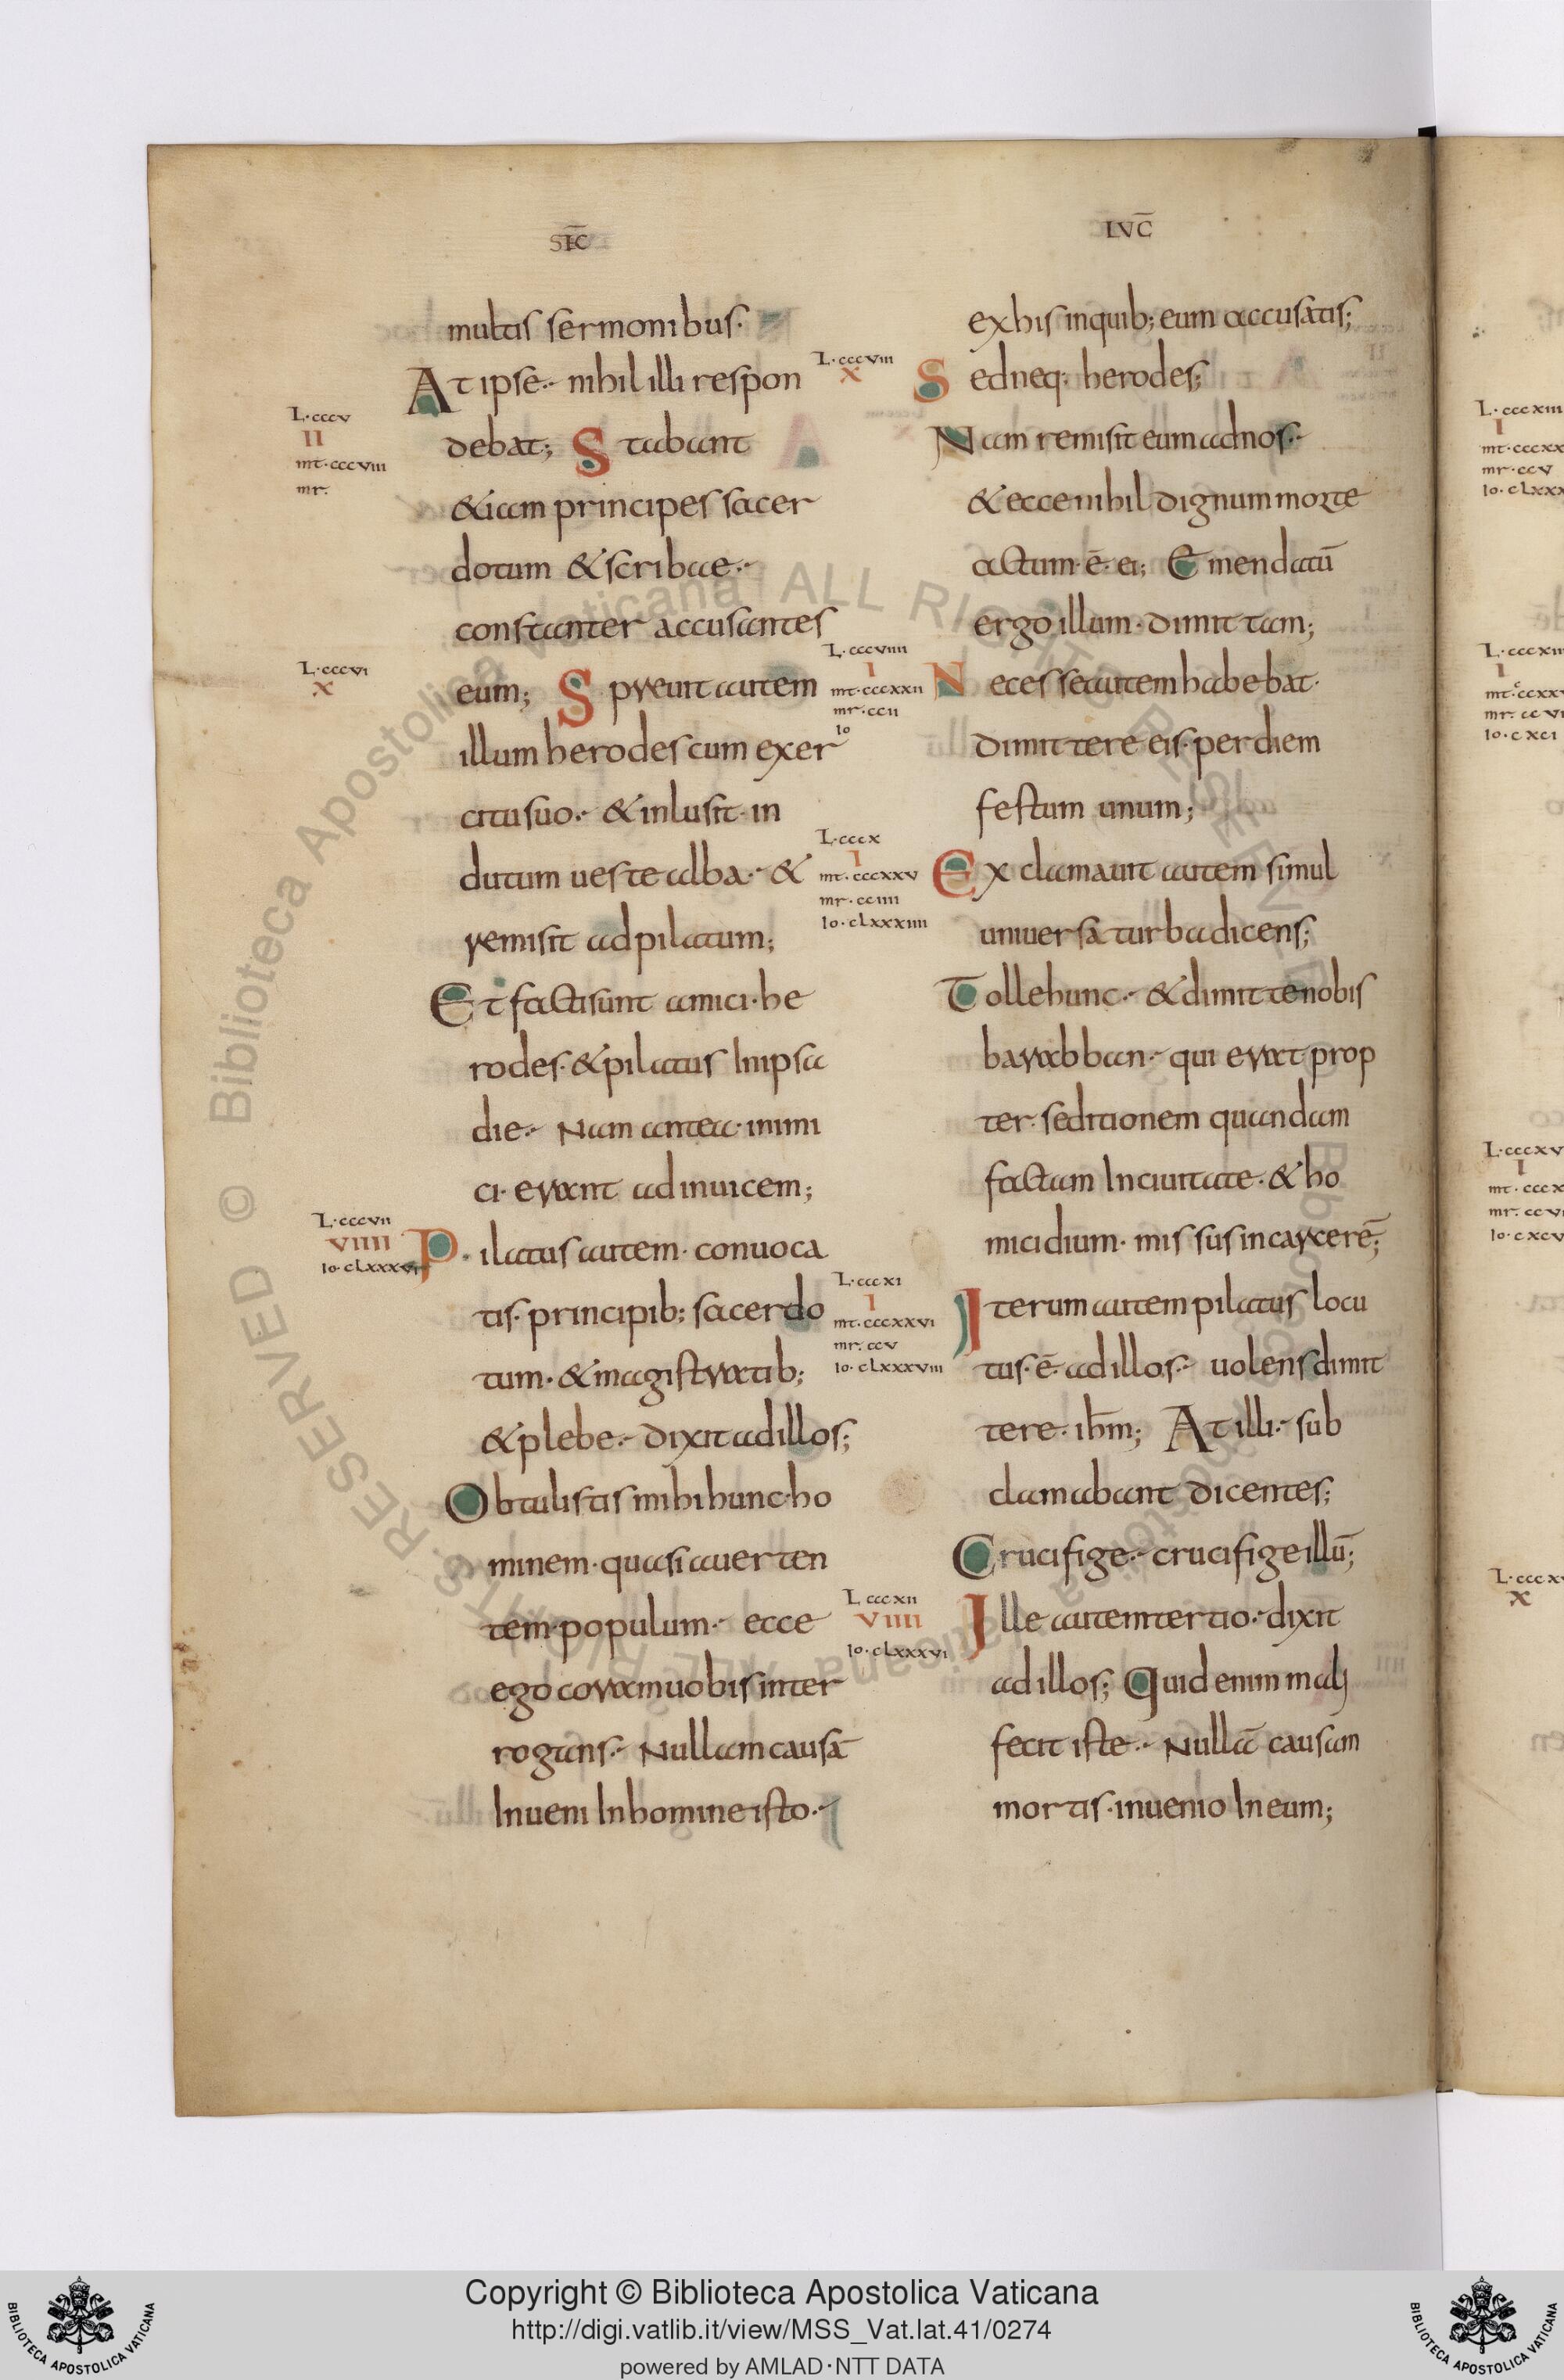 SĒC
LVC̄
multis sermonibus·
At ipse·· nihil illi respon
debat; Stabant
&iam principes sacer
dotum & scribae··
constanter accusantes
eum; Spreuit autem
illum herodes cum exer
citu suo·· & inlusit· in
dutum ueste alba·· &
remisit ad pilatum;
Et facti sunt amici· he
rodes· & pilatus In ipsa
die·· Nam antea· inimi
ci· erant ad inuicem;
Pilatus autem· conuoca
tis· principib; sacerdo
tum· & magistratib;
& plebe·· dixit ad illos;
Obtulistis mihi hunc· ho
minem· quasi auerten
tem· populum·· ecce
ego coram uobis inter
rogans·· Nullam causā
Inueni In homine isto··
L·cccv
II
mt·cccviii
mr·
L·cccvi
X
L·cccvii
VIIII
Io·clxxxvi
L·cccviii
X
L·cccviiii
I
mt·cccxxii
mr·ccii
Io
L·cccx
I
mt·cccxxv
mr·cciiii
Io·clxxxiiii
L·cccxi
I
mt·cccxxvi
mr·ccv
Io·clxxxviii
L cccxii
VIIII
Io·clxxxvi
ex his inquib; eum accusatis;
Sed neq· herodes;
Nam remisit eum ad nos··
& ecce nihil dignum morte
actum· ē· ei; Emendatū
ergo illum· dimittam;
Necesse autem habebat·
dimittere eis· per diem
festum unum;
Exclamauit autem simul
uniuersa turba dicens;
Tolle hunc·· & dimitte nobis
barabban·· qui erat prop
ter· seditionem quandam
factam In ciuitate· & ho
micidium· missus in carcerē;
Iterum autem pilatus locu
tus· ē· ad illos·· uolens dimit
tere· ihm̄; At illi·· sub
clamabant dicentes;
Crucifige·· crucifige illū;
Ille autem tertio·· dixit
ad illos; Quid enim mali
fecit iste·· Nullā causam
mortis· inuenio In eum;
L·cccxiii
I
mr·ccv
X
Copyright © Biblioteca Apostolica Vaticana
http://digi.vatlib.it/view/MSS_Vat.lat.41/0274
powered by AMLAD·NTT DATA
BIBLIOTECA APOSTOLICA VATICANA
BIBLIOTECA APOSTOLICA VATICANA